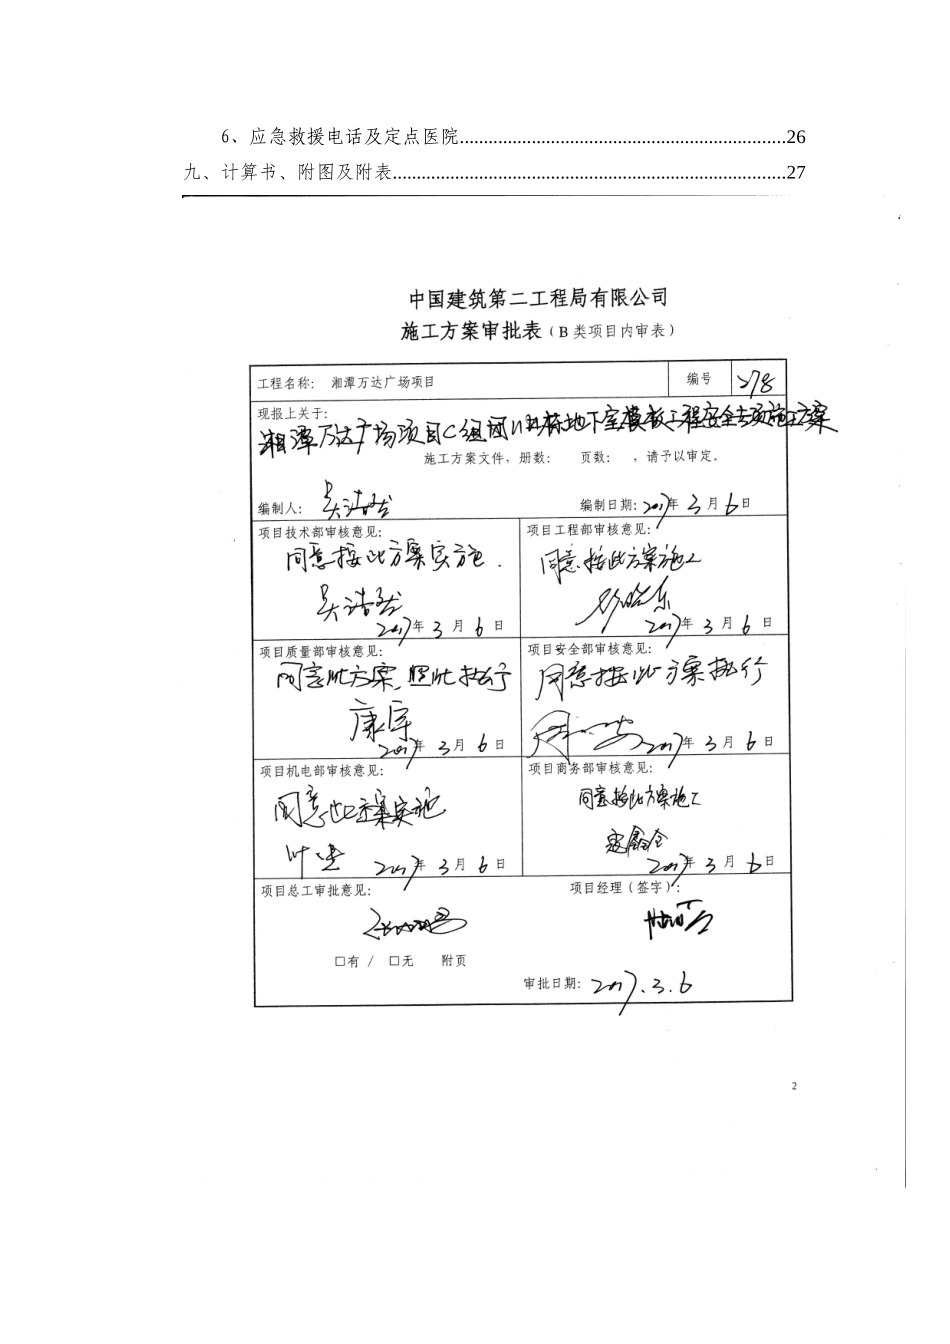 6、应急救援电话及定点医院......................................................................26
九、计算书、附图及附表....................................................................................27
中国建筑第二工程局有限公司
施工方案审批表（B 类项目内审表）
工程名称： 湘潭万达广场项目 编号 278
现报上关于：
湘潭万达广场项目C组团 栋地下室模板工程安全专项施工方案
施工方案文件，册数： 页数： ，请予以审定。
编制人： 吴浩 编制日期：2017年 3 月 6 日
项目技术部审核意见：
同意按此方案实施．
吴浩
2017年 3 月 6 日
项目工程部审核意见：
同意按此方案施工
2017年 3 月 6 日
项目质量部审核意见：
同意此方案，照此执行
康宇
2017年 3 月 6 日
项目安全部审核意见：
同意按此方案执行
2017年 3 月 6 日
项目机电部审核意见：
同意此方案实施
叶
2017年 3 月 6 日
项目商务部审核意见：
同意按此方案施工
2017年 3 月 6 日
项目总工审批意见：
□有 / □无 附页
项目经理（签字）：
审批日期：2017.3.6
2